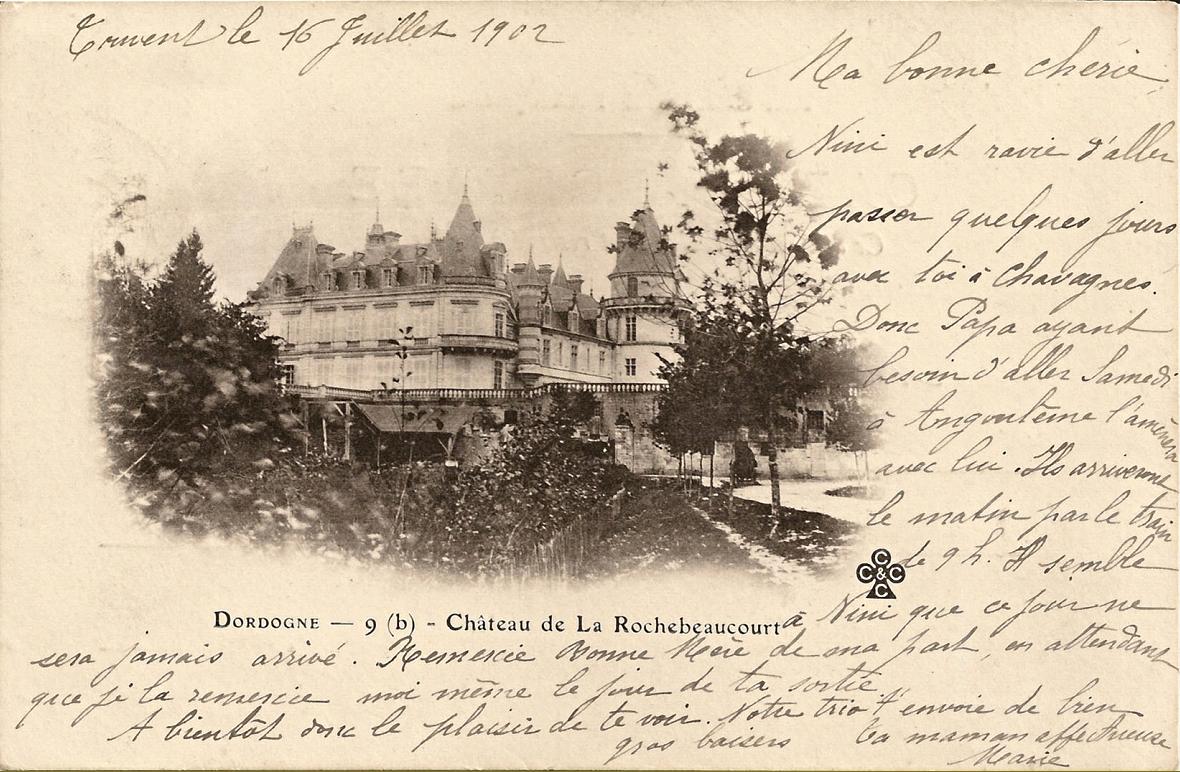 le 16 Juillet 1902
Ma bonne chérie
Nini est ravie d'aller
passer quelques jours
avec toi à Chavagnes.
Donc Papa ayant
besoin d'aller Samedi
à Angoulême l'amènera
avec lui. Ils arriveront
le matin par le train
de 9 h. Il semble
à Nini que ce jour ne
C C & C C
DORDOGNE — 9 (b) - Château de La Rochebeaucourt
sera jamais arrivé. Remercie Bonne Mère de ma part, en attendant
que je la remercie moi même le jour de ta sortie
A bientôt donc le plaisir de te voir. Notre trio t'envoie de bien
gros baisers Ta maman affectueuse
Marie